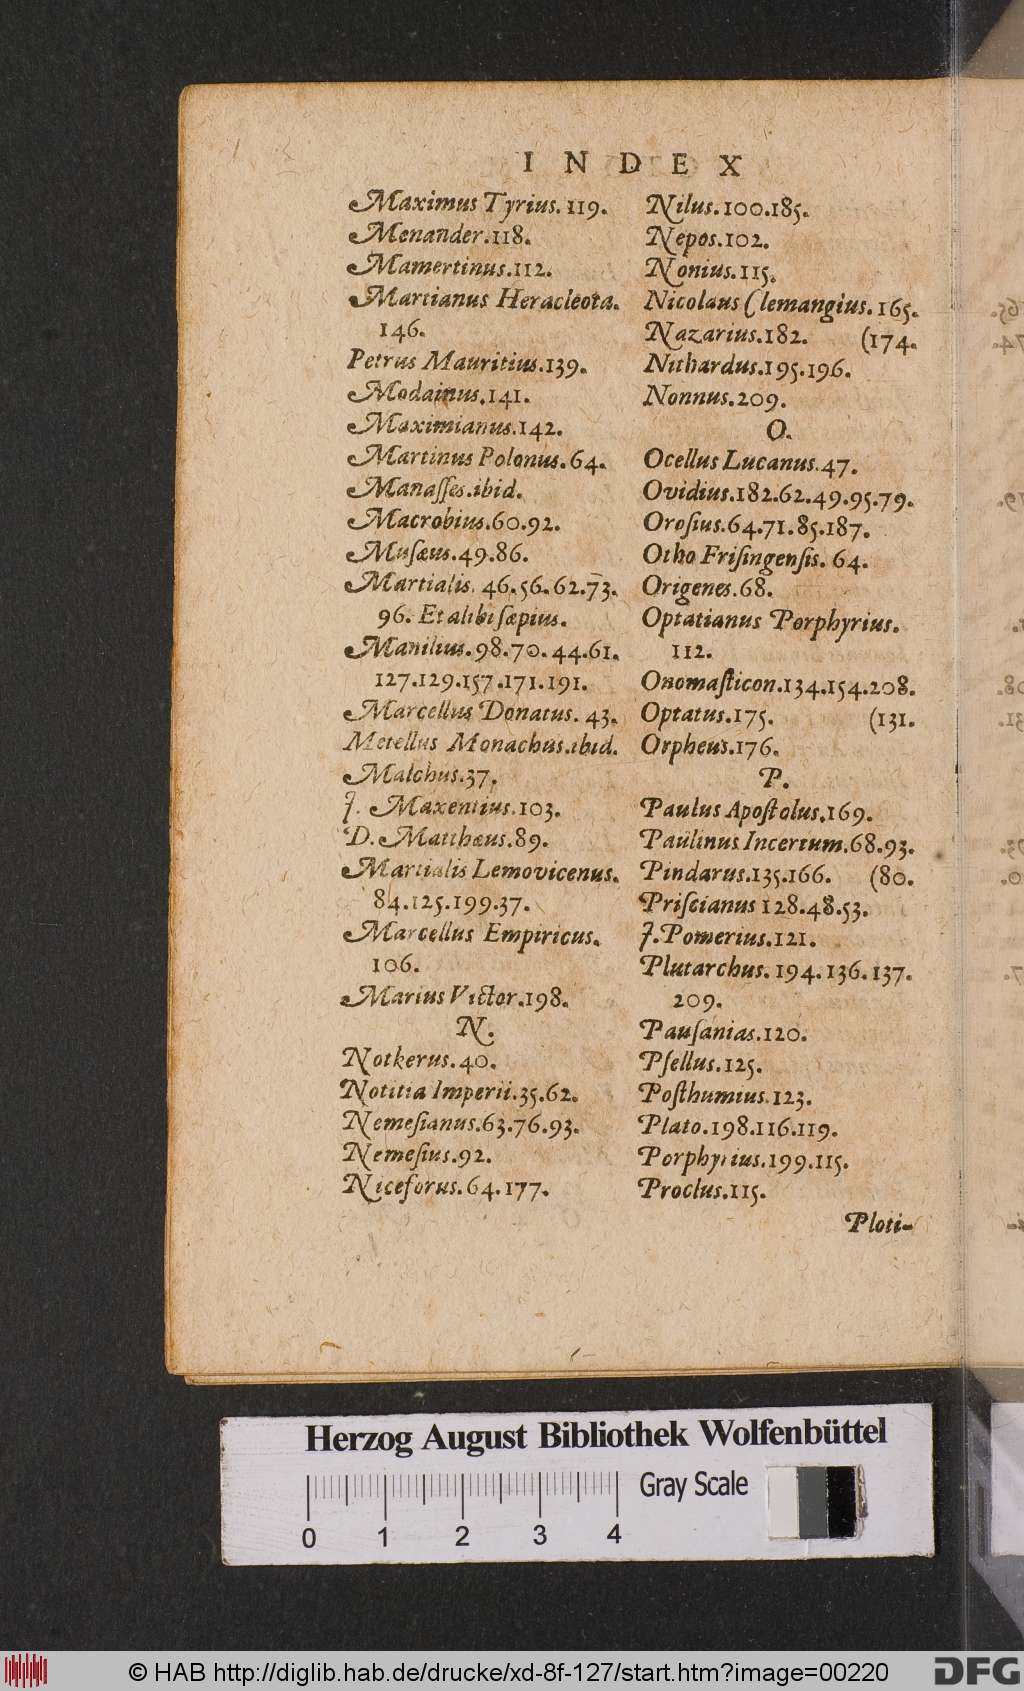 INDEX
Maximus Tyrius. 119.
Menander.118.
Mamertinus.112.
Martianus Heracleota.
146.
Petrus Mauritius.139.
Modainus.141.
Maximianus.142.
Martinus Polonus.64.
Manaſſes.ibid.
Macrobius.60.92.
Muſæus.49.86.
Martialis. 46.56.62.73.
96. Et alibi ſæpius.
Manilius.98.70.44.61.
127.129.157.171.191.
Marcellus Donatus. 43.
Metellus Monachus.ibid.
Malchus.37.
J. Maxentius.103.
D. Matthæus.89.
Martialis Lemovicenus.
84.125.199.37.
Marcellus Empiricus.
106.
Marius Victor.198.
N.
Notkerus.40.
Notitia Imperii.35.62.
Nemeſianus.63.76.93.
Nemeſius.92.
Niceforus.64.177.
Nilus.100.185.
Nepos.102.
Nonius.115.
Nicolaus Clemangius.165.
Nazarius.182. (174.
Nithardus.195.196.
Nonnus.209.
O.
Ocellus Lucanus.47.
Ovidius.182.62.49.95.79.
Oroſius.64.71.85.187.
Otho Friſingenſis. 64.
Origenes.68.
Optatianus Porphyrius.
112.
Onomaſticon.134.154.208.
Optatus.175. (131.
Orpheus.176.
P.
Paulus Apoſtolus.169.
Paulinus Incertum.68.93.
Pindarus.135.166. (80.
Priſcianus 128.48.53.
J.Pomerius.121.
Plutarchus. 194.136.137.
209.
Pauſanias.120.
Pſellus.125.
Poſthumius.123.
Plato.198.116.119.
Porphyrius.199.115.
Proclus.115.
Ploti-
Herzog August Bibliothek Wolfenbüttel
Gray Scale
0 1 2 3 4
© HAB http://diglib.hab.de/drucke/xd-8f-127/start.htm?image=00220
DFG